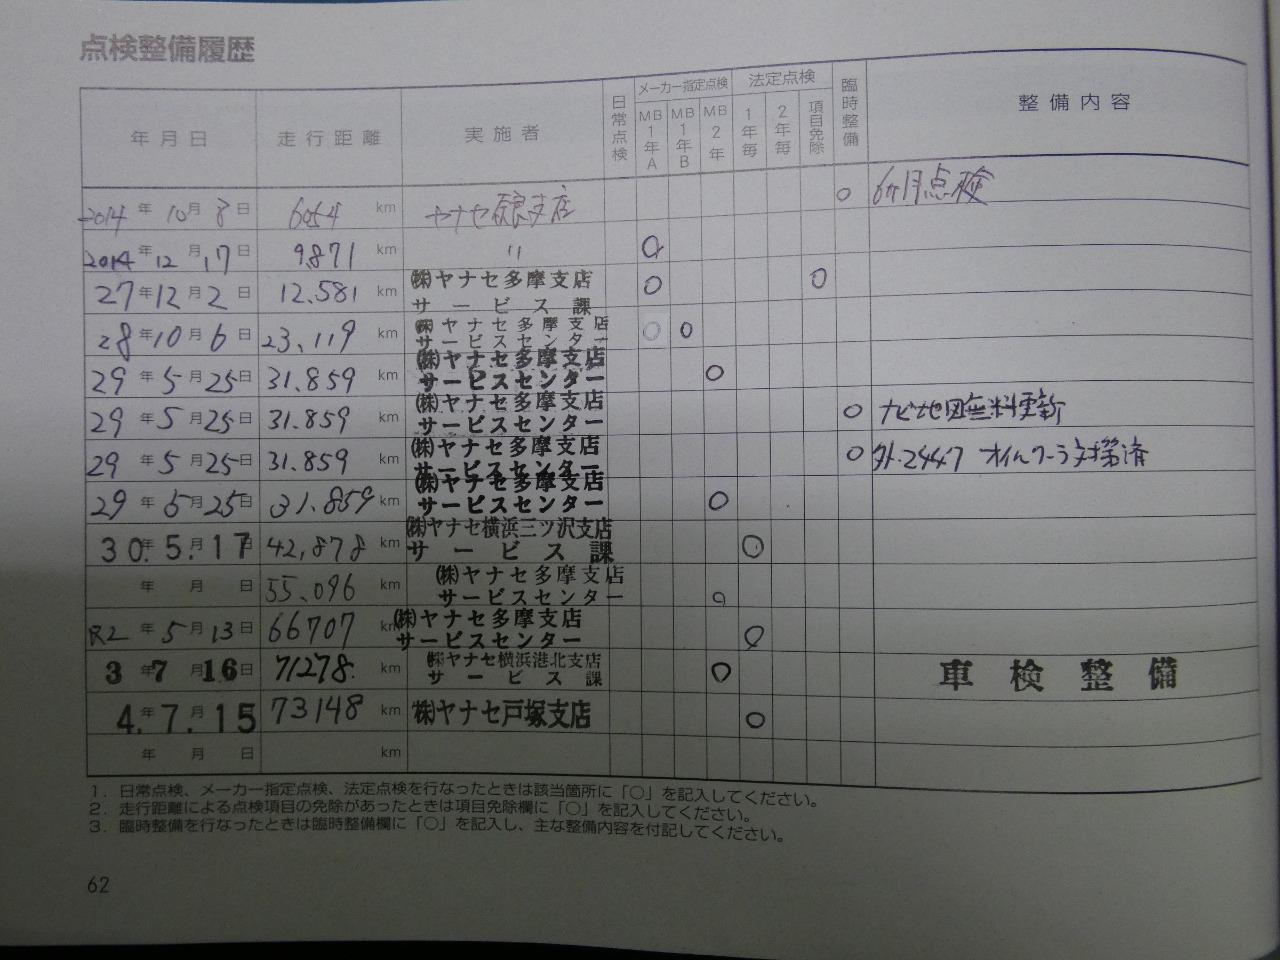 点検整備履歴
年月日 走行距離 実施者 日常点検 メーカー指定点検 MB1年A MB1年B MB2年 法定点検 1年毎 2年毎 項目免除 臨時整備 整備内容
2014年10月8日 6054km ヤナセ 支店 ○ 6ヶ月点検
2014年12月17日 9871km 〃 ○
27年12月2日 12.581km ㈱ヤナセ多摩支店 ○ ○
サービス課
28年10月6日 23.119km ㈱ヤナセ多摩支店 ○ ○
サービスセンター
29年5月25日 31.859km ㈱ヤナセ多摩支店 ○
サービスセンター
29年5月25日 31.859km ㈱ヤナセ多摩支店 ○ ナビ地図無料更新
サービスセンター
29年5月25日 31.859km ㈱ヤナセ多摩支店 ○ 外-2447 オイルクーラ交換済
サービスセンター
29年5月25日 31.859km ㈱ヤナセ多摩支店 ○
サービスセンター
30年.5月.17日 42,878km ㈱ヤナセ横浜三ツ沢支店 ○
サービス課
年月日 55.096km ㈱ヤナセ多摩支店 ○
サービスセンター
R2年5月13日 66707km ㈱ヤナセ多摩支店 ○
サービスセンター
3年7月16日 71278.km ㈱ヤナセ横浜港北支店 ○ 車検整備
サービス課
4.年7月.15日 73148km ㈱ヤナセ戸塚支店 ○
年月日 km
1. 日常点検、メーカー指定点検、法定点検を行なったときは該当箇所に「○」を記入してください。
2. 走行距離による点検項目の免除があったときは項目免除欄に「○」を記入してください。
3. 臨時整備を行なったときは臨時整備欄に「○」を記入し、主な整備内容を付記してください。
62